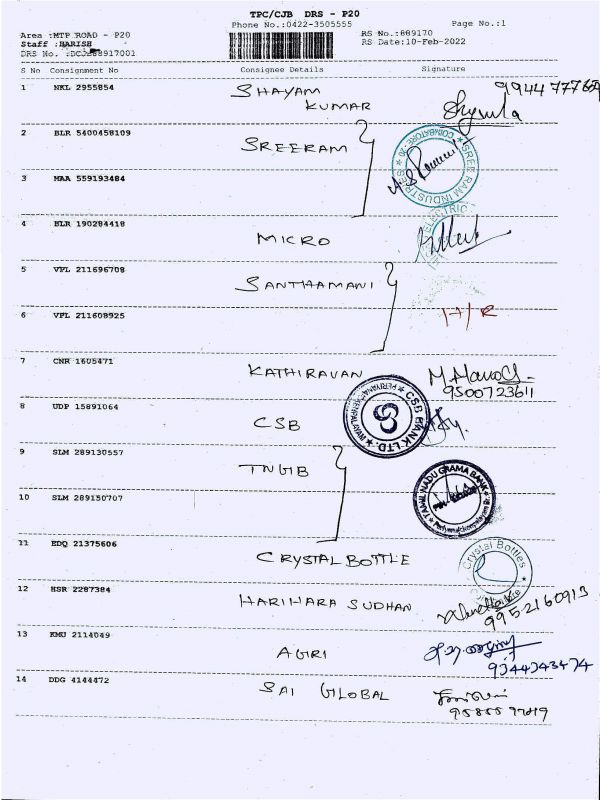 TPC/CJB DRS - P20
Phone No.:0422-3505555
Page No.:1
Area :MTP ROAD - P20
RS No.:889170
Staff :HARISH
RS Date:10-Feb-2022
DRS No. :DCJB88917001
S No Consignment No Consignee Details Signature
1 NKL 2955854 SHAYAM KUMAR
2 BLR 5400458109 SREERAM
SREE RAM INDUSTRIES COIMBATORE
3 MAA 559193484
4 BLR 190284418 MICRO
ELECTRIC
5 VPL 211696708 SANTHAMANI
6 VPL 211608925 H/R
7 CNR 1605471 KATHIRAVAN
9500723611
8 UDP 15891064 CSB
CSB BANK LTD
9 SLM 289130557 TNGB
TAMIL NADU GRAMA BANK
10 SLM 289150707
11 EDQ 21375606 CRYSTAL BOTTLE
Crystal Bottles
12 HSR 2287384 HARIHARA SUDHAN
9952160913
13 KMU 2114049 AGRI
9344343474
14 DDG 4144472 SAI GLOBAL